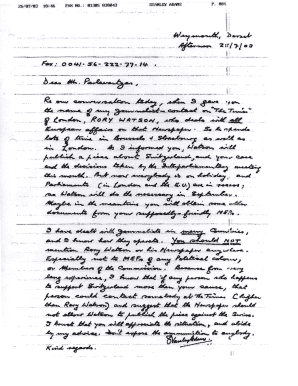 25/07/03 STANLEY ADAMS P. 001
Weymouth, Dorset
Afternoon 25/7/03
Fax: 0041-56-222-77-14.
Dear Mr. Parlavantzas,
Re our conversation today, when I gave you
the name of my journalist-contact on "The Times"
of London, RORY WATSON, who deals with all
European affairs on that Newspaper. So he spends
lots of time in Brussels & Strasbourg as well as
in London. As I informed you, Watson will
publish a piece about Switzerland, and your case
and the decisions taken by the Interparliamentary meeting
this month. But now everybody is on holiday, and
Parliaments (in London and the E.U) are in recess,
so Watson will do the necessary in September.
Maybe in the meantime you will obtain some other
documents from your supposedly-friendly MEPs.
I have dealt with Journalists in many Countries,
and I know how they operate. You should NOT
mention Rory Watson or his Newspaper anywhere.
Especially not to MEPs of any Political colour,
or Members of the Commission. Because from very
long experience, I know that if any person who happens
to support Switzerland more than your cause, that
person could contact somebody at the Times (higher
than Rory Watson) and suggest that the Newspaper should
not allow Watson to publish the piece against the Swiss.
I know that you will appreciate the situation, and abide
by my advice. Don't expose the communication to anybody.
Kind regards.
Stanley Adams